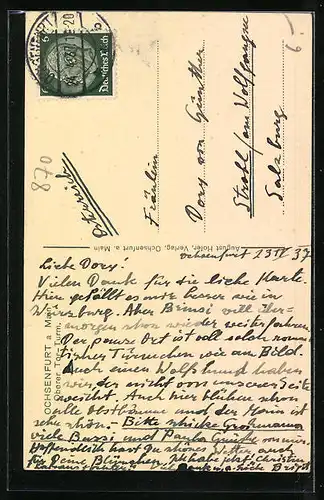 DEUTSCHES REICH
6
Österreich
Fräulein
Dory von Günther
Strobl / am Wolfgangsee
Salzburg
870
6-
August Hofer, Verlag, Ochsenfurt a. Main
OCHSENFURT a. Main
Oberer Tor-Turm.
Ochsenfurt 23 IV 37
Liebe Dory!
Vielen Dank für die liebe Karte.
Hier gefällt es mir besser wie in
Würzburg. Aber will über-
morgen schon wieder weiterfahren.
Der ganze Ort ist voll roman-
tischer Türmchen wie am Bild.
Auch einen Wolfshund haben
wir, der nicht von unserer Seite
weicht. Auch hier blühen schon
alle Obstbäume und der Main ist
sehr schön. - Bitte schicke Grossmama
viele Bussi und Grüße von mir.
Hoffentlich hast du schönes Wetter, auch
für Deine Blümchen. Ich habe jetzt